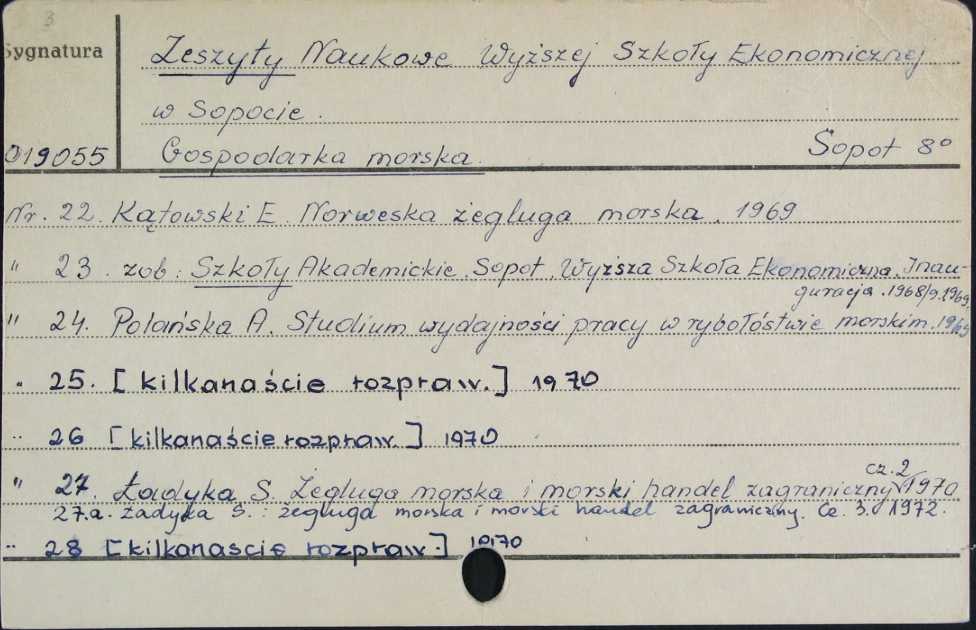 3
Sygnatura
Zeszyty Naukowe Wyższej Szkoły Ekonomicznej
w Sopocie.
019055 Gospodarka morska. Sopot 8°
Nr. 22. Kątowski E. Norweska żegluga morska. 1969
" 23. zob. Szkoły Akademickie. Sopot. Wyższa Szkoła Ekonomiczna. Inau-
guracja. 1968/9. 1969
" 24. Polańska A. Studium wydajności pracy w rybołóstwie morskim. 1969
" 25. [kilkanaście rozpraw.] 1970
" 26 [kilkanaście rozpraw.] 1970
cz. 2
" 27. Ładyka S. Żegluga morska i morski handel zagraniczny 1970
27.a. Ładyka S.: żegluga morska i morski handel zagraniczny. Cz. 3. 1972.
" 28 [kilkanascie rozpraw.] 1970